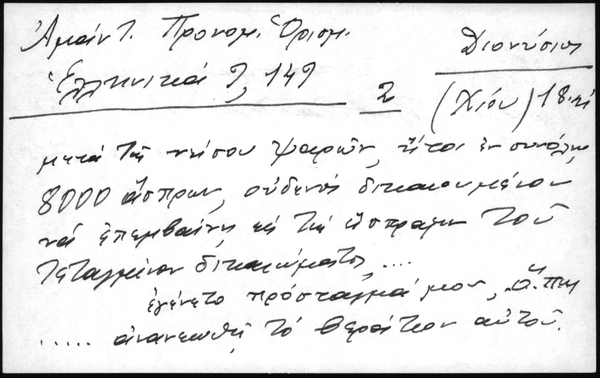 Ἀμάντ. Προνομ. Ὁρισμ. Διονύσιος
Ἑλληνικά 9, 149 2 (Χίου) 18
μετά τῆς νήσου Ψαρῶν, ἤτοι ἐν συνόλῳ
8000 ἄσπρων, οὐδενός δικαιουμένου
νά ἐπεμβαίνῃ εἰς τήν εἴσπραξιν τοῦ
τεταγμένου δικαιώματος,....
ἐγένετο πρόσταγμά μου, ὅπως
..... ἀνανεωθῇ τό βεράτιον αὐτοῦ.